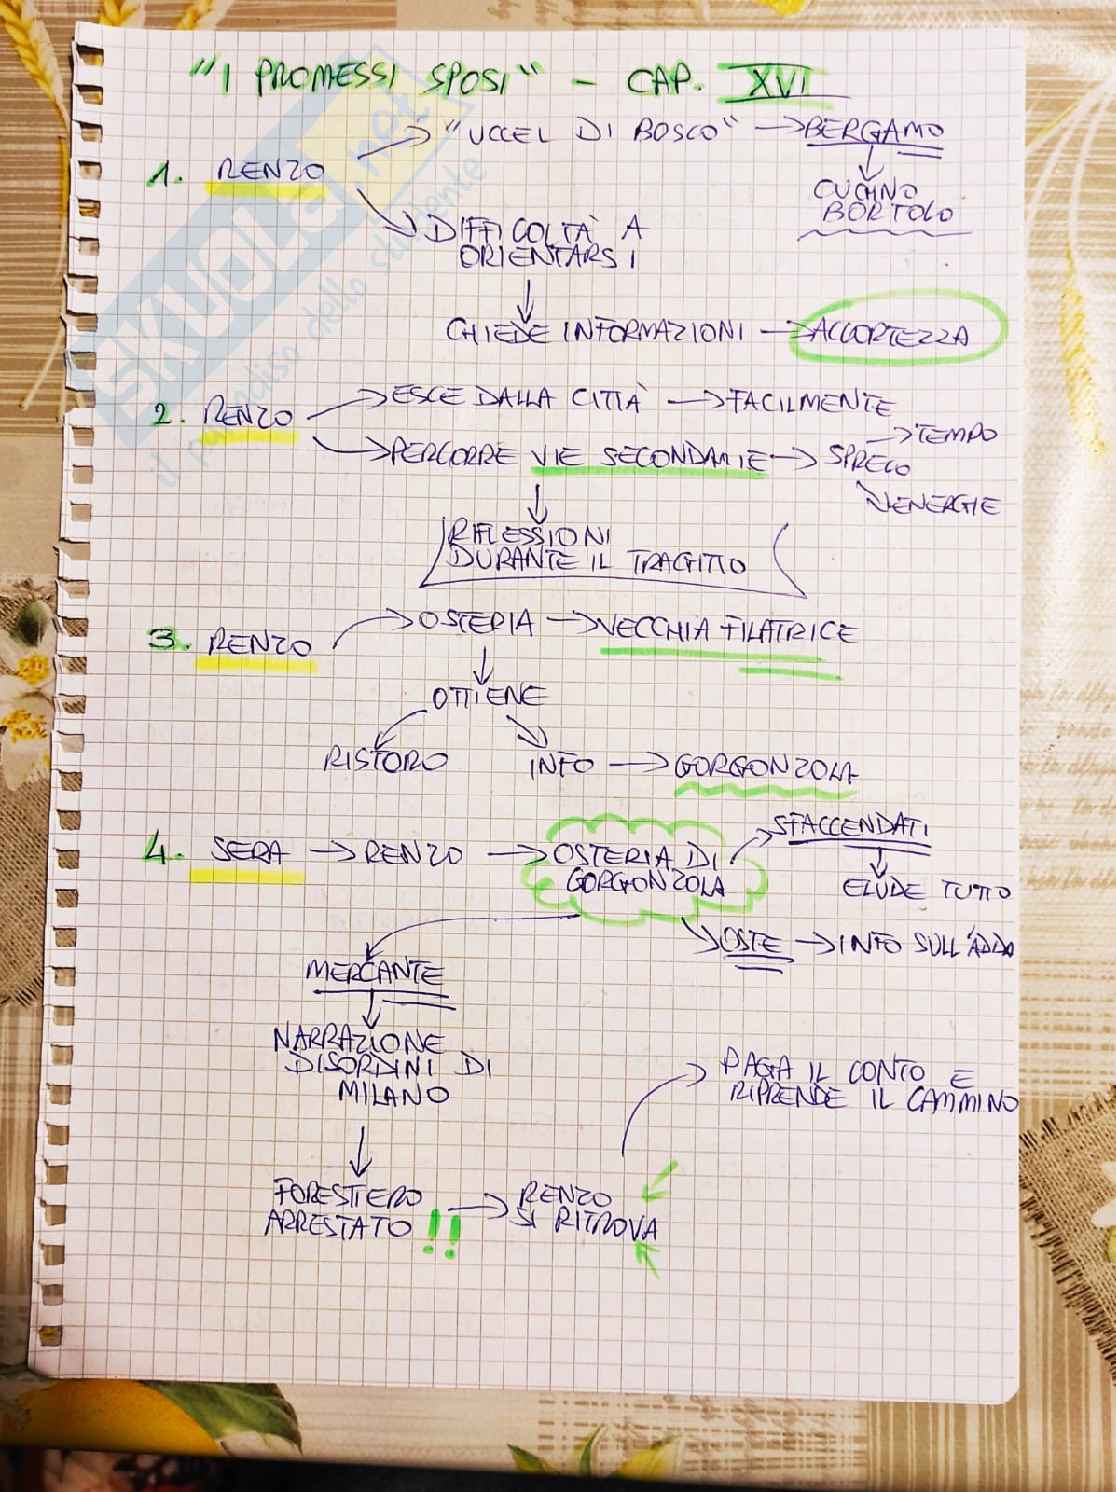 "I PROMESSI SPOSI" - CAP. XVI
1. RENZO → "UCCEL DI BOSCO" → BERGAMO
CUGINO
BORTOLO
DIFFICOLTÀ A
ORIENTARSI
CHIEDE INFORMAZIONI → ACCORTEZZA
2. RENZO → ESCE DALLA CITTÀ → FACILMENTE
PERCORRE VIE SECONDARIE → SPRECO
TEMPO
ENERGIE
RIFLESSIONI
DURANTE IL TRAGITTO
3. RENZO → OSTERIA → VECCHIA FILATRICE
OTTIENE
RISTORO
INFO → GORGONZOLA
4. SERA → RENZO → OSTERIA DI
GORGONZOLA
SFACCENDATI
ELUDE TUTTO
OSTE → INFO SULL'ADDA
MERCANTE
NARRAZIONE
DISORDINI DI
MILANO
FORESTIERO
ARRESTATO !!
RENZO
SI RITROVA
PAGA IL CONTO E
RIPRENDE IL CAMMINO
SKUOLA.net
il paradiso dello studente